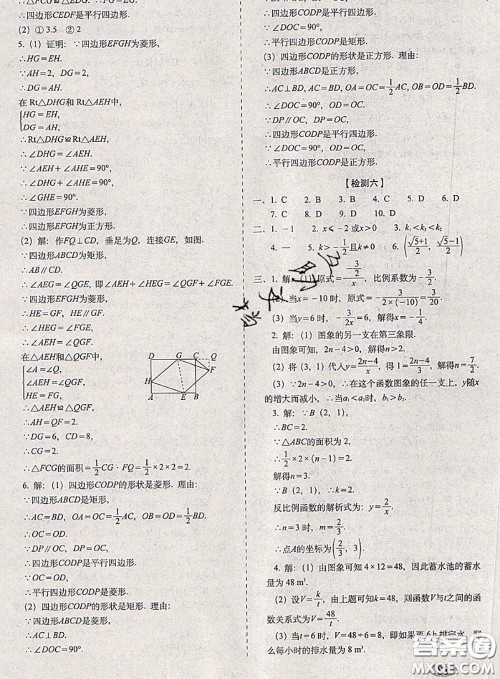 ∴四边形CEDF是平行四边形.
(2) ① 3.5  ② 2
5. (1) 证明: ∵四边形EFGH为菱形,
∴HG=EH,
∵AH=2, DG=2,
∴DG=AH.
在Rt△DHG和Rt△AEH中,
HG=EH,
DG=AH,
∴Rt△DHG≌△AEH.
∴∠DHG=∠AEH.
∵∠AEH+∠AHE=90°,
∴∠DHG+∠AHE=90°.
∴∠GHE=90°.
∵四边形EFGH为菱形,
∴四边形EFGH为正方形.
(2) 解: 作FQ⊥CD, 垂足为Q, 连接GE, 如图.
∵四边形ABCD为矩形,
∴AB//CD.
∴∠AEG=∠QGE, 即∠AEH+∠HEG=∠QGF+∠FGE.
∵四边形EFGH为菱形,
∴HE=GF,
∠HEG=∠FGE.
∴∠AEH=∠QGF.
在△AEH和△QGF中,
∠A=∠Q,
∠AEH=∠QGF,
HE=FG,
∴△AEH≌△QGF.
∴AH=QF=2.
∵DG=6, CD=8,
∴CG=2.
∴△FCG的面积=1/2CG·FQ=1/2×2×2=2.
6. 解: 四边形CODP的形状是菱形. 理由:
∵四边形ABCD是矩形,
∴AC=BD, OA=OC=1/2AC, OB=OD=1/2BD.
∴OC=OD.
∵DP//OC, DP=OC,
∴四边形CODP是平行四边形.
∵OC=OD,
∴平行四边形CODP是菱形.
(2) 四边形CODP的形状是矩形. 理由:
∵四边形ABCD是菱形,
∴AC⊥BD.
∴∠DOC=90°.
∵DP//OC, DP=OC,
∴四边形CODP是平行四边形.
∵∠DOC=90°,
∴平行四边形CODP是矩形.
(3) 四边形CODP的形状是正方形. 理由:
∵四边形ABCD是正方形,
∴AC⊥BD, AC=BD, OA=OC=1/2AC, OB=OD=1/2BD.
∴∠DOC=90°, OD=OC.
∵DP//OC, DP=OC,
∴四边形CODP是平行四边形.
∵∠DOC=90°, OD=OC,
∴平行四边形CODP是正方形.
【检测六】
一、1. C  2. B  3. C  4. D  5. D  6. D
7. D  8. D  9. D  10. C
二、1. -1  2. x≤-2或x>0  3. k₁<k₂<k₃
4. 一  5. k>-1/2且k≠0  6. ((√5+1)/2, (√5-1)/2)
三、1. 解: (1) 原式=-(3/2)/x, 比例系数为-3/2.
(2) 当x=-10时, 原式=-3/(2×(-10))=3/20.
(3) 当y=6时, -3/(2x)=6, x=-1/4.
2. 解: (1) 图象的另一支在第三象限.
由图象可知, 2n-4>0, 解得n>2.
(2) 将(3, 1)代入y=(2n-4)/x, 得1=(2n-4)/3, 解得n=7/2.
(3) ∵2n-4>0, ∴在这个函数图象的任一支上, y随x
的增大而减小, ∴当a₁<a₂时, b₁>b₂.
3. 解: ∵B(2, 1),
∴BC=2.
∵△ABC的面积为2,
∴1/2×2×(n-1)=2.
解得n=3.
∵B(2, 1),
反比例函数的解析式为y=2/x.
∴n=3时, x=2/3.
∴点A的坐标为(2/3, 3).
4. 解: (1) 由图象可知4×12=48, 因此蓄水池的蓄水
量为48 m³.
(2) 设V=k/t, 由上题可知k=48, 则函数V与t之间的函
数关系式为V=48/t.
(3) 当t=6时, V=48÷6=8, 即如果要6 h排完水, 那
么每小时的排水量为8 m³.
D G C Q
F
H
A E B